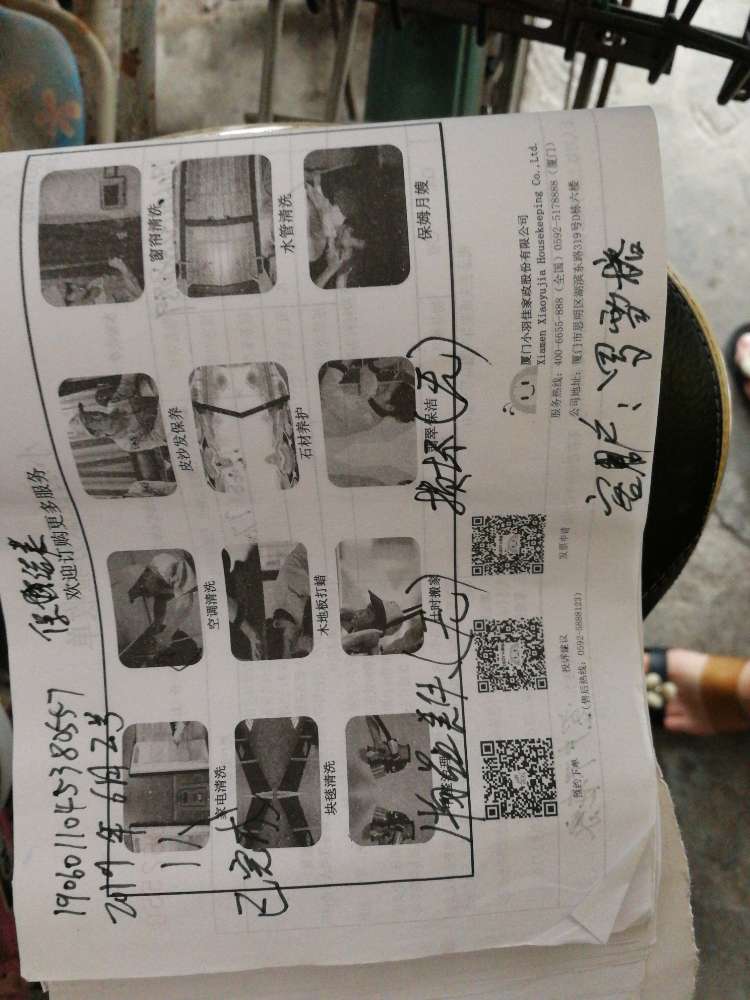 1906011045380557
2019年6月2号
保洁
欢迎订购更多服务
家电清洗
空调清洗
皮沙发保养
窗帘清洗
1人
块毯清洗
木地板打蜡
石材养护
水管清洗
已完成
临时搬家
翡翠保洁
保姆月嫂
物品丢件(无) 损坏(无)
预约下单
投诉建议
(售后热线: 0592-5888123)
发票申请
厦门小羽佳家政股份有限公司
Xiamen Xiaoyujia Housekeeping Co.,Ltd.
服务热线: 400-6655-888 (全国) 0592-5178888 (厦门)
公司地址: 厦门市思明区湖滨东路319号D栋六楼
客户: